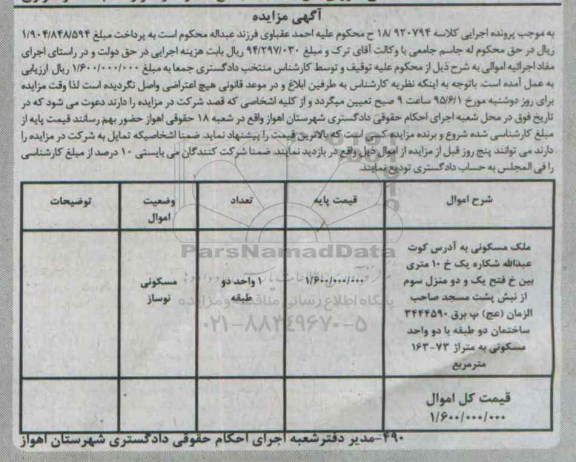 آگهی مزایده
به موجب پرونده اجرایی کلاسه ۹۲۰۷۹۴ /۱۸ ح محکوم علیه احمد عقباوی فرزند عبداله محکوم است به پرداخت مبلغ ۱/۹۰۴/۸۴۸/۵۹۴
ریال در حق محکوم له جاسم جامعی با وکالت آقای ترک و مبلغ ۹۴/۲۹۷/۰۳۰ ریال بابت هزینه اجرایی در حق دولت و در راستای اجرای
مفاد اجرائیه اموالی به شرح ذیل از محکوم علیه توقیف و توسط کارشناس منتخب دادگستری جمعا به مبلغ ۱/۶۰۰/۰۰۰/۰۰۰ ریال ارزیابی
به عمل آمده است. باتوجه به اینکه نظریه کارشناس به طرفین ابلاغ و در موعد قانونی هیچ اعتراضی واصل نگردیده است لذا وقت مزایده
برای روز دوشنبه مورخ ۹۵/۶/۱ ساعت ۹ صبح تعیین میگردد و از کلیه اشخاصی که قصد شرکت در مزایده را دارند دعوت می شود که در
تاریخ فوق در محل شعبه اجرای احکام حقوقی دادگستری شهرستان اهواز واقع در شعبه ۱۸ حقوقی اهواز حضور بهم رسانند قیمت پایه از
مبلغ کارشناسی شده شروع و برنده مزایده کسی است که بالاترین قیمت را پیشنهاد نماید. ضمنا اشخاصیکه تمایل به شرکت در مزایده را
دارند می توانند پنج روز قبل از مزایده از اموال ذیل واقع در بازدید نمایند. ضمنا شرکت کنندگان می بایستی ۱۰ درصد از مبلغ کارشناسی
را فی المجلس به حساب دادگستری تودیع نمایند.
شرح اموال
قیمت پایه
تعداد
وضعیت اموال
توضیحات
ملک مسکونی به آدرس کوت
عبدالله شکاره یک خ ۱۰ متری
بین خ فتح یک و دو منزل سوم
از نبش پشت مسجد صاحب
الزمان (عج) پ برق ۳۴۴۴۵۹۰
ساختمان دو طبقه با دو واحد
مسکونی به متراژ ۷۳-۱۶۳
مترمربع
۱/۶۰۰/۰۰۰/۰۰۰
۱ واحد دو
طبقه
مسکونی
نوساز
قیمت کل اموال
۱/۶۰۰/۰۰۰/۰۰۰
ParsNamadData
پایگاه اطلاع رسانی مناقصه و مزایده
۰۲۱-۸۸۳۴۹۶۷۰-۵
۴۹۰-مدیر دفترشعبه اجرای احکام حقوقی دادگستری شهرستان اهواز